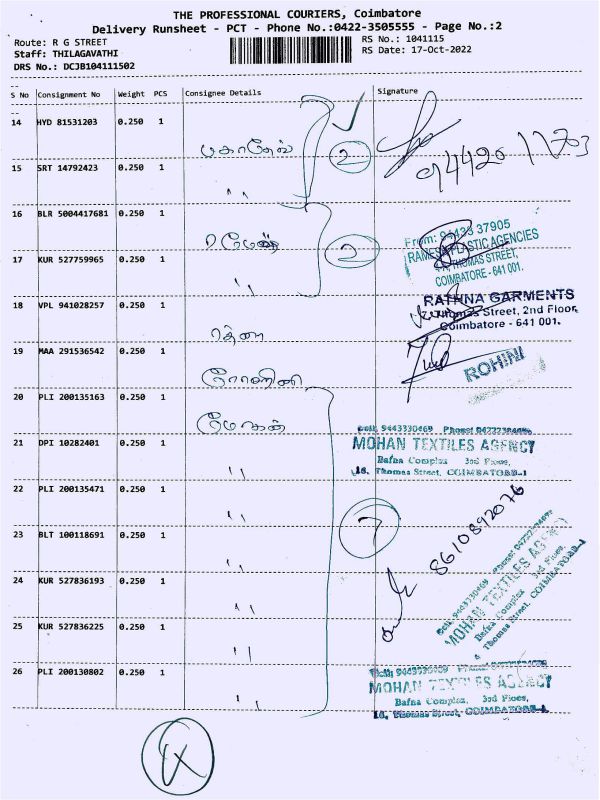 THE PROFESSIONAL COURIERS, Coimbatore
Delivery Runsheet - PCT - Phone No.:0422-3505555 - Page No.:2
Route: R G STREET
RS No.: 1041115
Staff: THILAGAVATHI
RS Date: 17-Oct-2022
DRS No.: DCJB104111502
S No Consignment No Weight PCS Consignee Details Signature
14 HYD 81531203 0.250 1 மகாதேவ் 2
94420 11703
15 SRT 14792423 0.250 1 ,,
16 BLR 5004417681 0.250 1 ரமேஷ் 2
From: 94433 37905
RAMESH PLASTIC AGENCIES
THOMAS STREET,
COIMBATORE - 641 001.
17 KUR 527759965 0.250 1 ,,
18 VPL 941028257 0.250 1 ரத்னா
RATHNA GARMENTS
Thomas Street, 2nd Floor,
Coimbatore - 641 001.
19 MAA 291536542 0.250 1 ரோகினி
ROHINI
20 PLI 200135163 0.250 1 மோகன்
Cell: 9443330469 Phone:
MOHAN TEXTILES AGENCY
Bafna Complex 3rd Floor,
16, Thomas Street, COIMBATORE-1
21 DPI 10282401 0.250 1 ,,
22 PLI 200135471 0.250 1 ,,
7
8610892076
23 BLT 100118691 0.250 1 ,,
MOHAN TEXTILES AGENCY
Bafna Complex 3rd Floor,
Thomas Street, COIMBATORE-1
24 KUR 527836193 0.250 1 ,,
25 KUR 527836225 0.250 1 ,,
26 PLI 200130802 0.250 1 ,,
Cell: 9443330469
MOHAN TEXTILES AGENCY
Bafna Complex, 3rd Floor,
16, Thomas Street, COIMBATORE-1